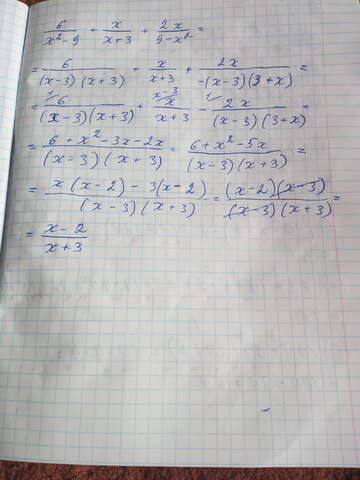 6/(x²-9) + x/(x+3) + 2x/(9-x²) =
= 6/((x-3)(x+3)) + x/(x+3) + 2x/(-(x-3)(3+x)) =
= ¹⁄6/((x-3)(x+3)) + ˣ⁻³⁄x/(x+3) - ¹⁄2x/((x-3)(3+x)) =
= (6+x²-3x-2x)/((x-3)(x+3)) = (6+x²-5x)/((x-3)(x+3)) =
= (x(x-2)-3(x-2))/((x-3)(x+3)) = ((x-2)(x-3))/((x-3)(x+3)) =
= (x-2)/(x+3)